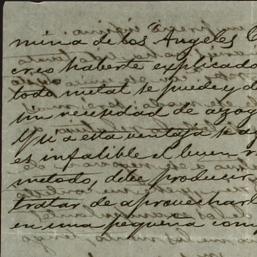 mina de los Angeles
creo haberte explicado
todo metal se puede y d
sin necesidad de azog
Si á esta ventaja se ag
es infalible el buen
metodo, debe producir
tratar de aprovecharl
en una pequeña com